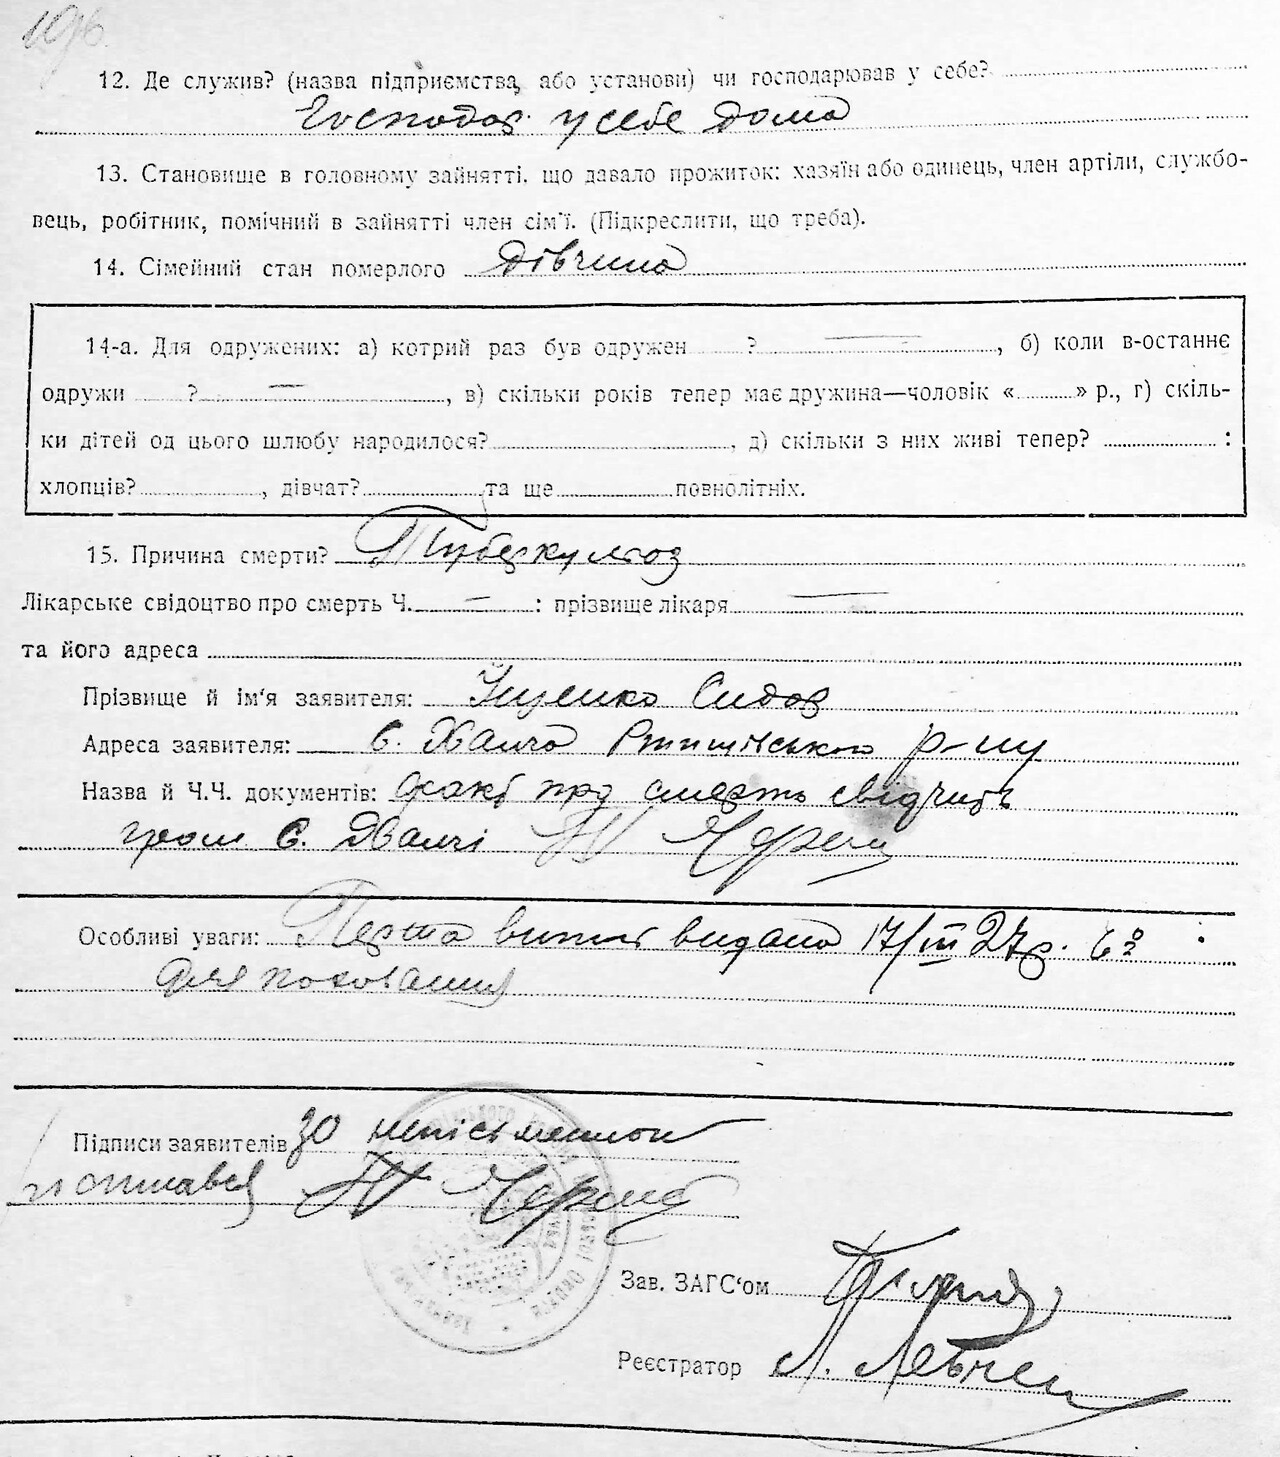 196
12. Де служив? (назва підприємства, або установи) чи господарював у себе?
Господар. у себе дома
13. Становище в головному зайнятті, що давало прожиток: хазяїн або одинець, член артіли, службо-
вець, робітник, помічний в зайнятті член сім'ї. (Підкреслити, що треба).
14. Сімейний стан померлого дівчина
14-а. Для одружених: а) котрий раз був одружен ? —, б) коли в-останнє
одружи ? —, в) скільки років тепер має дружина—чоловік « » р., г) скіль-
ки дітей од цього шлюбу народилося? , д) скільки з них живі тепер? :
хлопців? , дівчат? та ще повнолітніх.
15. Причина смерти? Туберкульоз
Лікарське свідоцтво про смерть Ч. — : прізвище лікаря —
та його адреса
Прізвище й ім'я заявителя: Сидор
Адреса заявителя: с. Халча Ржищівського р-ну
Назва й Ч.Ч. документів: факт про смерть свідчить
гром. с. Халчі
Особливі уваги: Перша випис видана 17/III 27р.
для поховання
Підписи заявителів за неписьменного
поставив
Зав. ЗАГС'ом
Реєстратор Л.